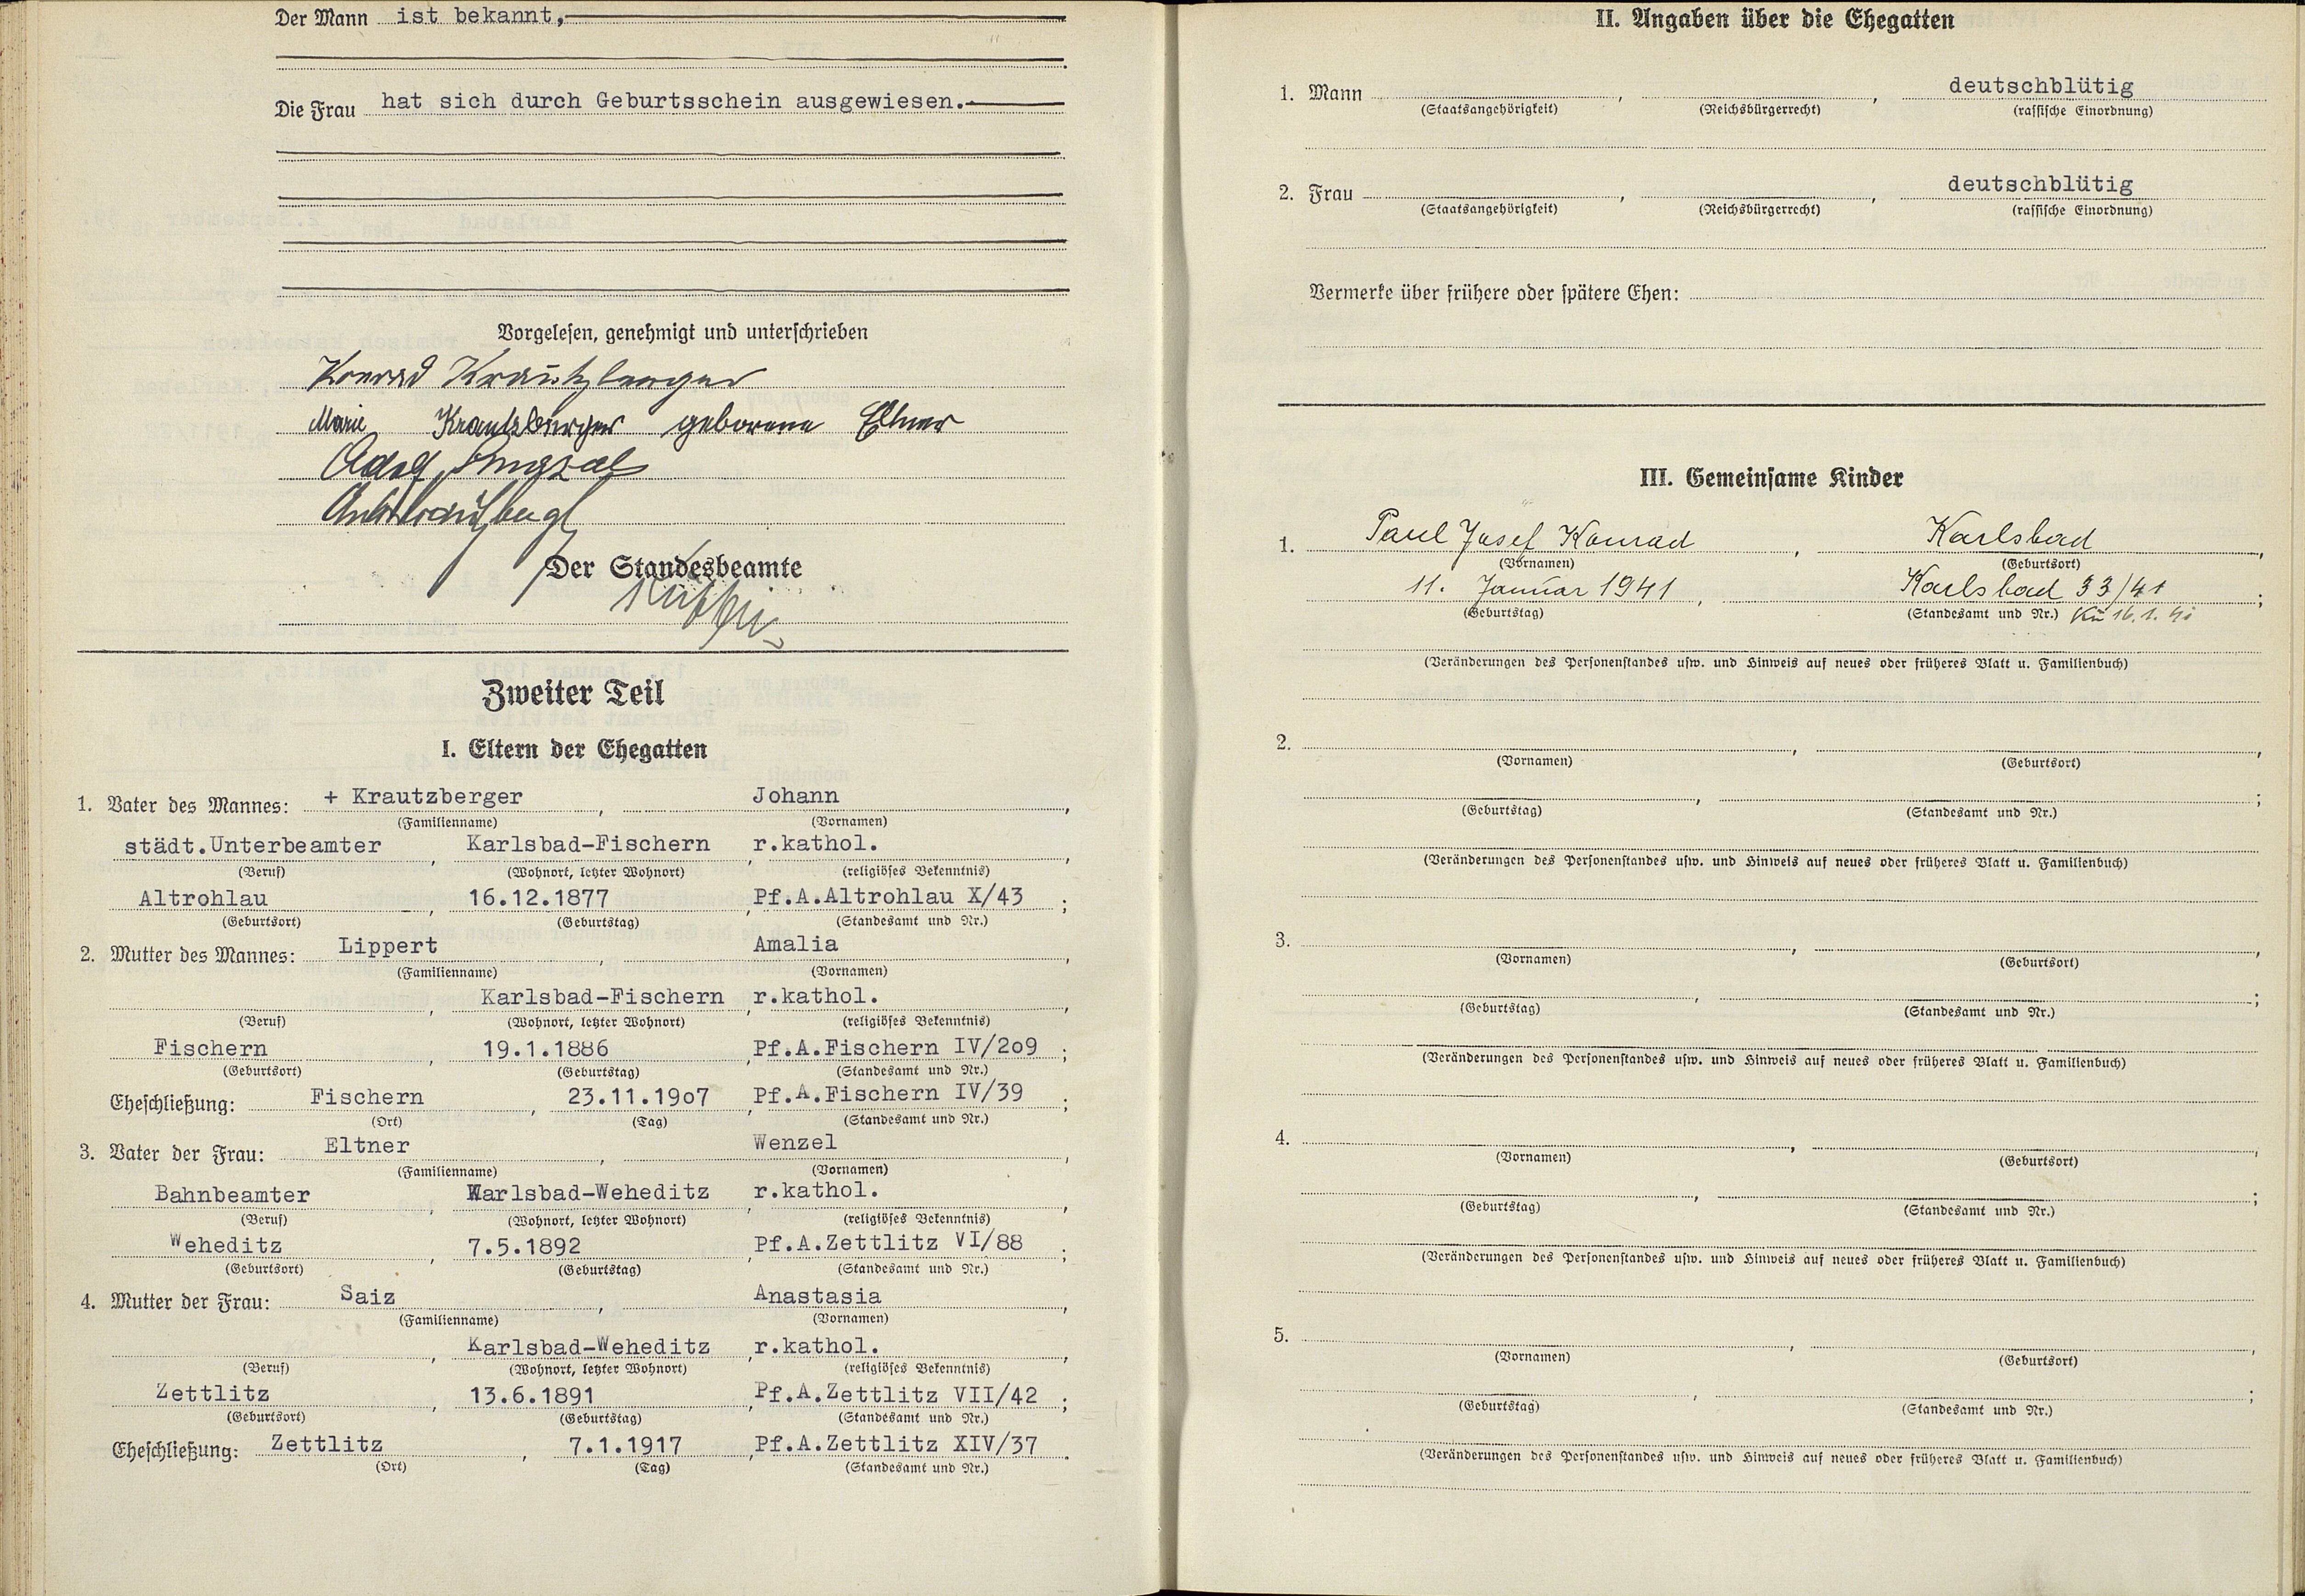 Der Mann ist bekannt,
Die Frau hat sich durch Geburtsschein ausgewiesen.
Vorgelesen, genehmigt und unterschrieben
Konrad Krautzberger
Marie Krautzberger geborene Eltner
Adolf
Der Standesbeamte
Zweiter Teil
I. Eltern der Ehegatten
1. Vater des Mannes: + Krautzberger, Johann,
(Familienname) (Vornamen)
städt.Unterbeamter, Karlsbad-Fischern, r.kathol.,
(Beruf) (Wohnort, letzter Wohnort) (religiöses Bekenntnis)
Altrohlau, 16.12.1877, Pf.A.Altrohlau X/43;
(Geburtsort) (Geburtstag) (Standesamt und Nr.)
2. Mutter des Mannes: Lippert, Amalia,
(Familienname) (Vornamen)
, Karlsbad-Fischern, r.kathol.,
(Beruf) (Wohnort, letzter Wohnort) (religiöses Bekenntnis)
Fischern, 19.1.1886, Pf.A.Fischern IV/2o9;
(Geburtsort) (Geburtstag) (Standesamt und Nr.)
Eheschließung: Fischern, 23.11.19o7, Pf.A.Fischern IV/39;
(Ort) (Tag) (Standesamt und Nr.)
3. Vater der Frau: Eltner, Wenzel,
(Familienname) (Vornamen)
Bahnbeamter, Karlsbad-Weheditz, r.kathol.,
(Beruf) (Wohnort, letzter Wohnort) (religiöses Bekenntnis)
Weheditz, 7.5.1892, Pf.A.Zettlitz VI/88;
(Geburtsort) (Geburtstag) (Standesamt und Nr.)
4. Mutter der Frau: Saiz, Anastasia,
(Familienname) (Vornamen)
, Karlsbad-Weheditz, r.kathol.,
(Beruf) (Wohnort, letzter Wohnort) (religiöses Bekenntnis)
Zettlitz, 13.6.1891, Pf.A.Zettlitz VII/42;
(Geburtsort) (Geburtstag) (Standesamt und Nr.)
Eheschließung: Zettlitz, 7.1.1917, Pf.A.Zettlitz XIV/37.
(Ort) (Tag) (Standesamt und Nr.)
II. Angaben über die Ehegatten
1. Mann , , deutschblütig
(Staatsangehörigkeit) (Reichsbürgerrecht) (rassische Einordnung)
2. Frau , , deutschblütig
(Staatsangehörigkeit) (Reichsbürgerrecht) (rassische Einordnung)
Vermerke über frühere oder spätere Ehen:
III. Gemeinsame Kinder
1. Paul Josef Konrad, Karlsbad,
(Vornamen) (Geburtsort)
11. Januar 1941, Karlsbad 33/41;
(Geburtstag) (Standesamt und Nr.) Kü 16.1.41
(Veränderungen des Personenstandes usw. und Hinweis auf neues oder früheres Blatt u. Familienbuch)
2. , ,
(Vornamen) (Geburtsort)
, ;
(Geburtstag) (Standesamt und Nr.)
(Veränderungen des Personenstandes usw. und Hinweis auf neues oder früheres Blatt u. Familienbuch)
3. , ,
(Vornamen) (Geburtsort)
, ;
(Geburtstag) (Standesamt und Nr.)
(Veränderungen des Personenstandes usw. und Hinweis auf neues oder früheres Blatt u. Familienbuch)
4. , ,
(Vornamen) (Geburtsort)
, ;
(Geburtstag) (Standesamt und Nr.)
(Veränderungen des Personenstandes usw. und Hinweis auf neues oder früheres Blatt u. Familienbuch)
5. , ,
(Vornamen) (Geburtsort)
, ;
(Geburtstag) (Standesamt und Nr.)
(Veränderungen des Personenstandes usw. und Hinweis auf neues oder früheres Blatt u. Familienbuch)